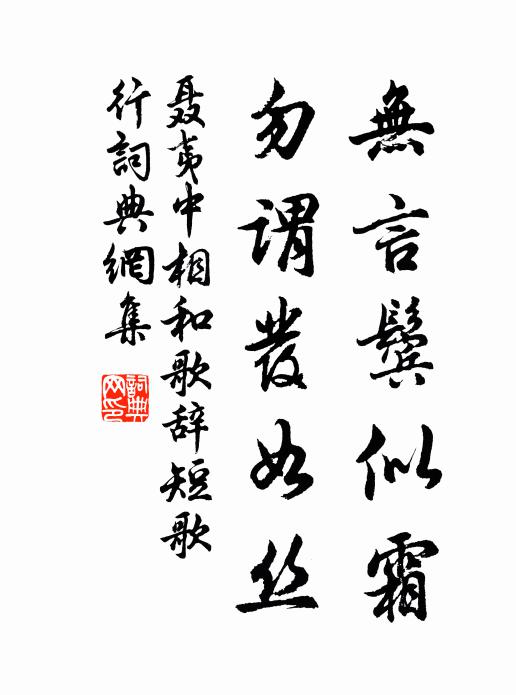 無言鬢似霜
勿謂發如丝
聂夷中相和歌辞短歌
行詞典網集
詞典網印